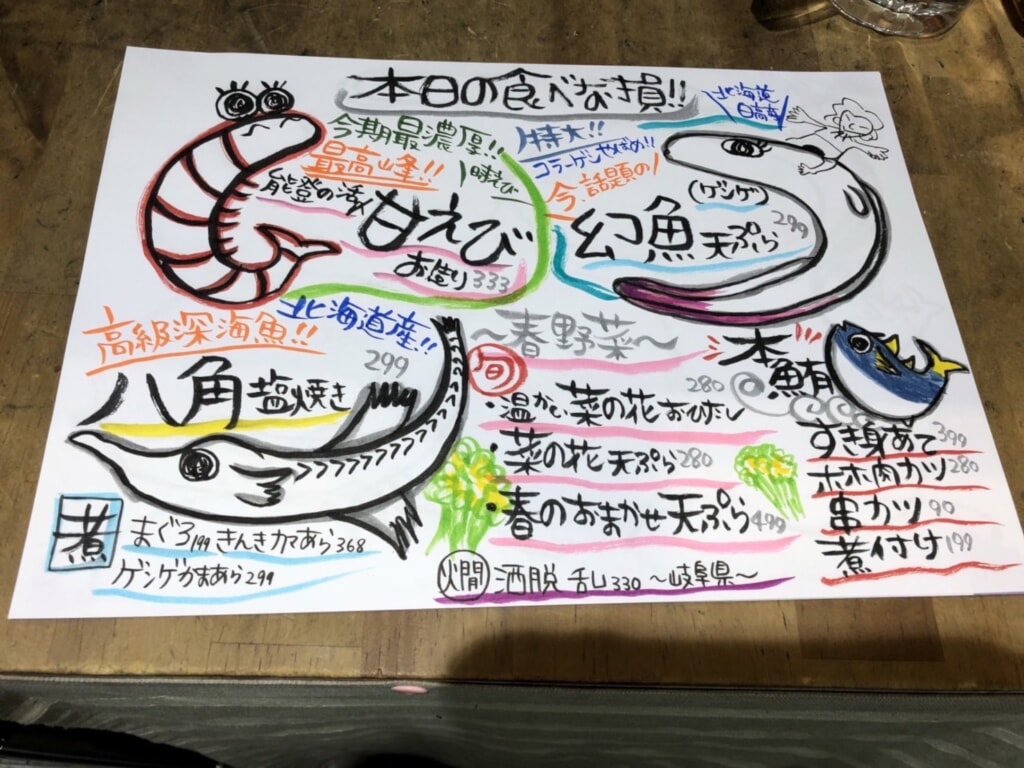 本日の食べなの損!!
今期最濃厚!!
最高峰!!
能登の活〆
甘えび
お造り 333
特大!!
コラーゲンやばめ!!
今、話題の
(ゲンゲ)
幻魚 天ぷら 299
北海道
日高産
高級深海魚!!
北海道産!!
八角 塩焼き 299
煮
まぐろ199 きんきカマあら368
ゲンゲかまあら299
〜春野菜〜
旬
・温かい菜の花おひたし 280
・菜の花 天ぷら 280
・春のおまかせ天ぷら 499
燗 洒脱 乱 330 〜岐阜県〜
本鮪
すき身あて 399
ホホ肉カツ 280
串カツ 90
煮付け 199